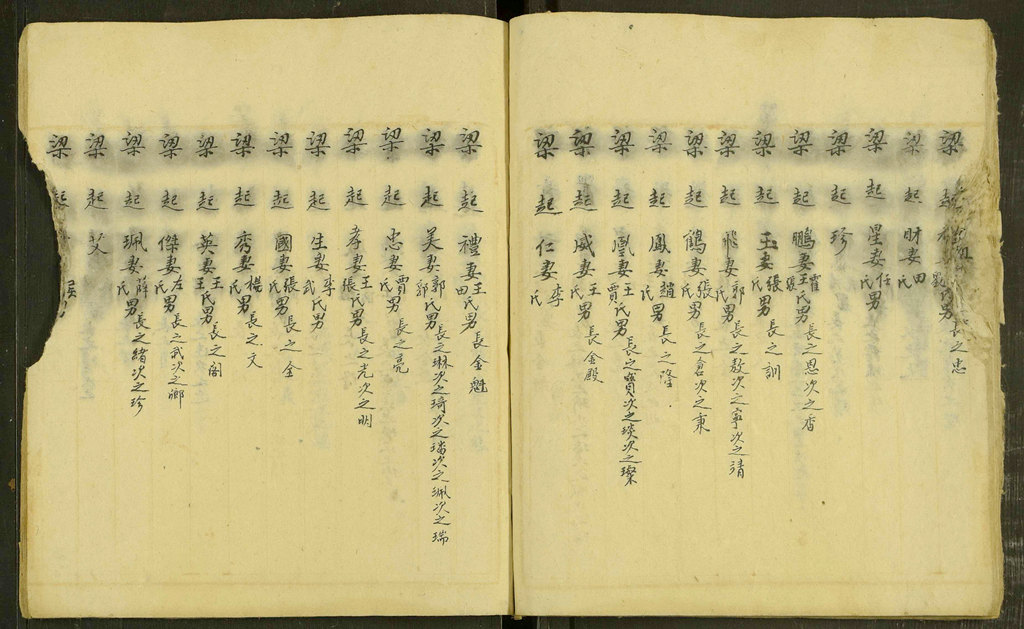 梁起 妻 氏男長之忠
梁起財妻田氏
梁起星妻任氏男
梁起珍
梁起鵬妻霍氏王氏男長之恩次之香
梁起玉妻張氏男長之訓
梁起飛妻郭氏男長之敖次之寧次之清
梁起鶴妻張氏男長之倉次之秉
梁起鳳妻趙氏男長之隆
梁起凰妻王氏賈氏男長之寶次之琰次之璨
梁起威妻王氏男長金殿
梁起仁妻李氏
梁起禮妻王氏田氏男長金魁
梁起美妻郭氏郭氏男長之琳次之琦次之璠次之珮次之瑞
梁起忠妻賈氏男長之亮
梁起孝妻王氏張氏男長之光次之明
梁起生妻李氏武氏男
梁起國妻張氏男長之金
梁起秀妻楊氏男長之文
梁起英妻王氏王氏男長之閣
梁起傑妻左氏男長之武次之卿
梁起珮妻薛氏男長之緒次之珍
梁起艾
梁起